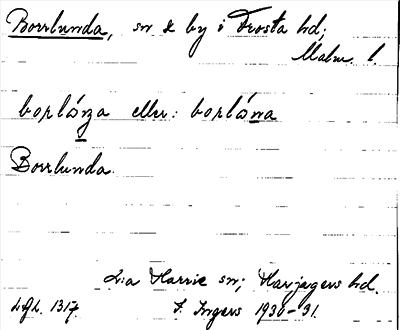 Borrlunda, sn & by i Frosta hd;
Malm. l.
borlánga eller: borlána
Borrlunda.
L:a Harrie sn; Harjagers hd.
LAL. 1317. I. Ingers 1930-31.